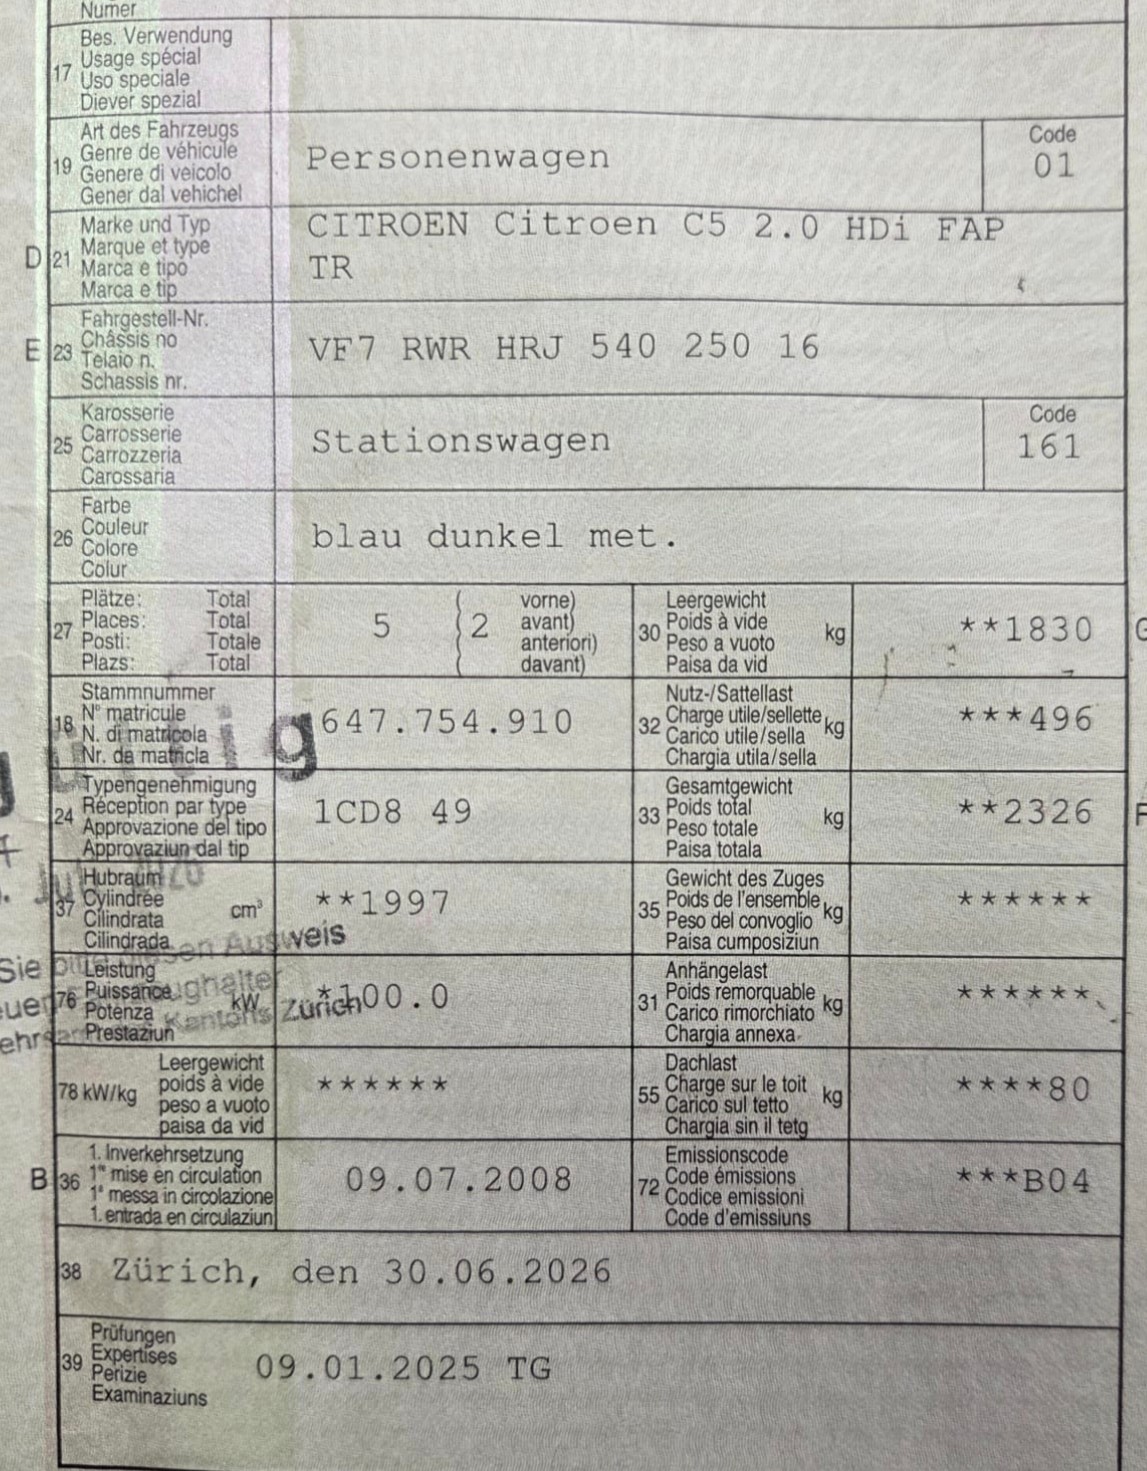 Numer
17 Bes. Verwendung
Usage spécial
Uso speciale
Diever spezial
19 Art des Fahrzeugs
Genre de véhicule
Genere di veicolo
Gener dal vehichel
Personenwagen
Code
01
D 21 Marke und Typ
Marque et type
Marca e tipo
Marca e tip
CITROEN Citroen C5 2.0 HDi FAP
TR
E 23 Fahrgestell-Nr.
Châssis no
Telaio n.
Schassis nr.
VF7 RWR HRJ 540 250 16
25 Karosserie
Carrosserie
Carrozzeria
Carossaria
Stationswagen
Code
161
26 Farbe
Couleur
Colore
Colur
blau dunkel met.
27 Plätze: Total
Places: Total
Posti: Totale
Plazs: Total
5 ( 2 vorne)
avant)
anteriori)
davant)
30 Leergewicht
Poids à vide
Peso a vuoto
Paisa da vid
kg
**1830
G
18 Stammnummer
N° matricule
N. di matricola
Nr. da matricla
647.754.910
32 Nutz-/Sattellast
Charge utile/sellette
Carico utile/sella
Chargia utila/sella
kg
***496
24 Typengenehmigung
Réception par type
Approvazione del tipo
Approvaziun dal tip
1CD8 49
33 Gesamtgewicht
Poids total
Peso totale
Paisa totala
kg
**2326
F
37 Hubraum
Cylindrée
Cilindrata
Cilindrada
cm³
**1997
35 Gewicht des Zuges
Poids de l'ensemble
Peso del convoglio
Paisa cumposiziun
kg
******
Sie bitte diesen Ausweis
76 Leistung
Puissance
Potenza
Prestaziun
kW
*100.0
Kantons Zürich
31 Anhängelast
Poids remorquable
Carico rimorchiato
Chargia annexa
kg
******
78 kW/kg Leergewicht
poids à vide
peso a vuoto
paisa da vid
******
55 Dachlast
Charge sur le toit
Carico sul tetto
Chargia sin il tetg
kg
****80
B 36 1. Inverkehrsetzung
1re mise en circulation
1a messa in circolazione
1. entrada en circulaziun
09.07.2008
72 Emissionscode
Code émissions
Codice emissioni
Code d'emissiuns
***B04
38 Zürich, den 30.06.2026
39 Prüfungen
Expertises
Perizie
Examinaziuns
09.01.2025 TG